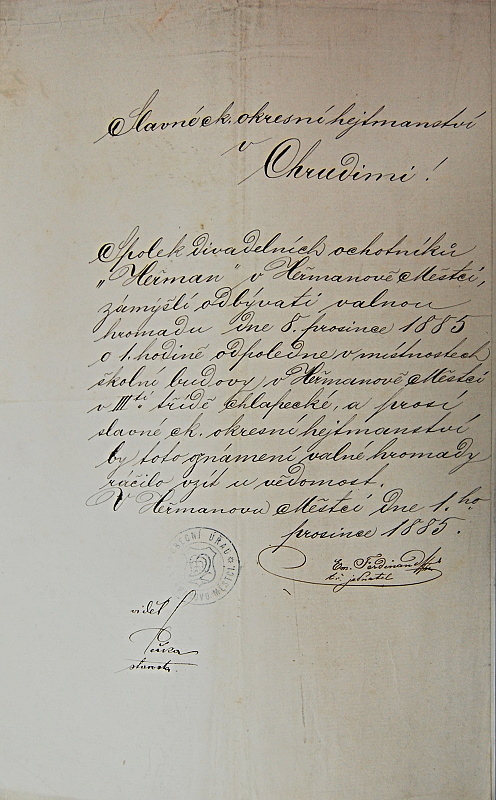 Slavné ck. okresní hejtmanství
v
Chrudimi!
Spolek divadelních ochotníků
„Heřman" v Heřmanově Městci,
zamýšlí odbývati valnou
hromadu dne 8. prosince 1885
o 1. hodině odpoledne v místnostech
školní budovy v Heřmanově Městci
v IIIti třídě chlapecké, a prosí
slavné ck. okresní hejtmanství
by toto oznámení valné hromady
ráčilo vzít u vědomost.
V Heřmanovu Městci dne 1.ho
prosince 1885.
Em. Ferdinand
t.č. jednatel
viděl
starosta